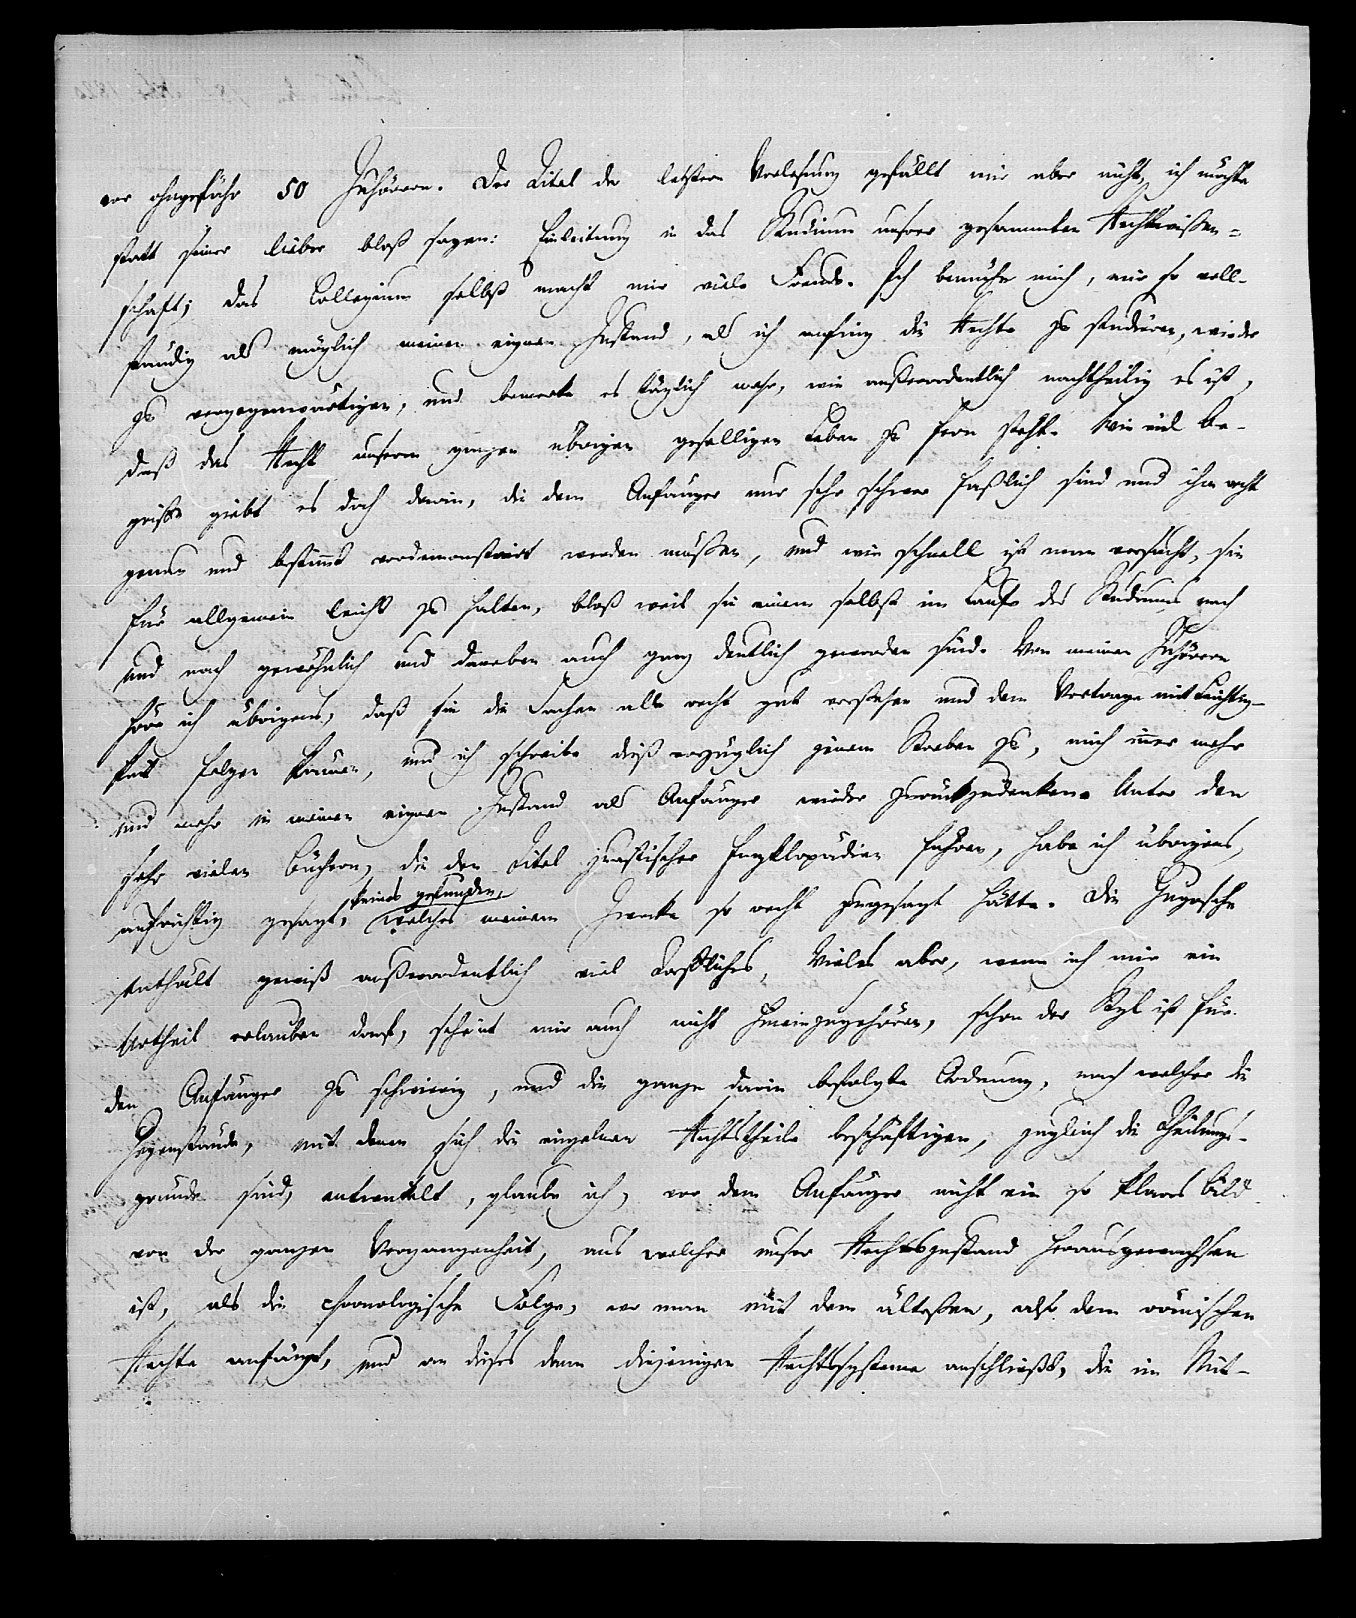 vor ohngefähr 50 Zuhörern. Der Titel der letztern Vorlesung gefällt mir aber nicht, ich möchte
statt seiner lieber bloß sagen: Einleitung in das Studium unsrer gesammten Rechtswissen=
schaft; das Collegium selbst macht mir viele Freude. Ich bemühe mich, mir so voll-
ständig als möglich meinen eignen Zustand, als ich anfing die Rechte zu studieren, wieder
zu vergegenwärtigen, und bemerke es täglich mehr, wie außerordentlich nachtheilig es ist,
daß das Recht unserm ganzen übrigen geselligen Leben zu fern steht. Wie viel Be-
griffe giebt es doch darin, die dem Anfänger nur sehr schwer faßlich sind und ihm recht
genau und bestimmt vordemonstrirt werden müssen, und wie schnell ist man versucht, sie
für allgemein leicht zu halten, bloß weil sie einem selbst im Laufe des Studiums nach
und nach gewöhnlich und daneben auch ganz deutlich geworden sind. Von meinen Zuhörern
höre ich übrigens, daß sie die Sachen alle recht gut verstehen und dem Vortrage mit Leichtig-
keit folgen können, und ich schreibe dieß vorzüglich jenem Streben zu, mich immer mehr
und mehr in meinen eignen Zustand als Anfänger wieder zurückzudenken. Unter den
sehr vielen Büchern, die den Titel juristischer Enzyklopädien führen, habe ich übrigens,
aufrichtig gesagt, keines gefunden, welches meinem Zwecke so recht zugesagt hätte. Die Hugosche
enthält gewiß außerordentlich viel Treffliches, Vieles aber, wenn ich mir ein
Urtheil erlauben darf, scheint mir auch nicht hineinzugehören, schon der Styl ist für
den Anfänger zu schwierig, und die ganze darin befolgte Ordnung, nach welcher die
Gegenstände, mit denen sich die einzelnen Rechtstheile beschäftigen, zugleich die Theilungs-
gründe sind, entwickelt, glaube ich, vor dem Anfänger nicht ein so klares Bild
von der ganzen Vergangenheit, aus welcher unser Rechtszustand herausgewachsen
ist, als die chronologische Folge, wo man mit dem ältesten, also dem römischen
Rechte anfängt, und an dieses dann diejenigen Rechtssysteme anschließt, die im Mit-